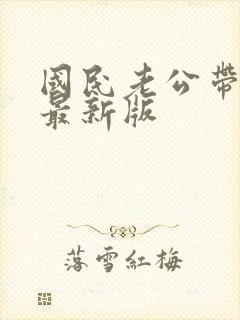 國民老公帶
最新版
落雪紅梅